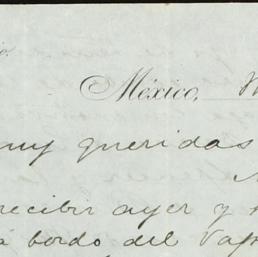 México,
muy queridas
recibir ayer y
a bordo del Vap